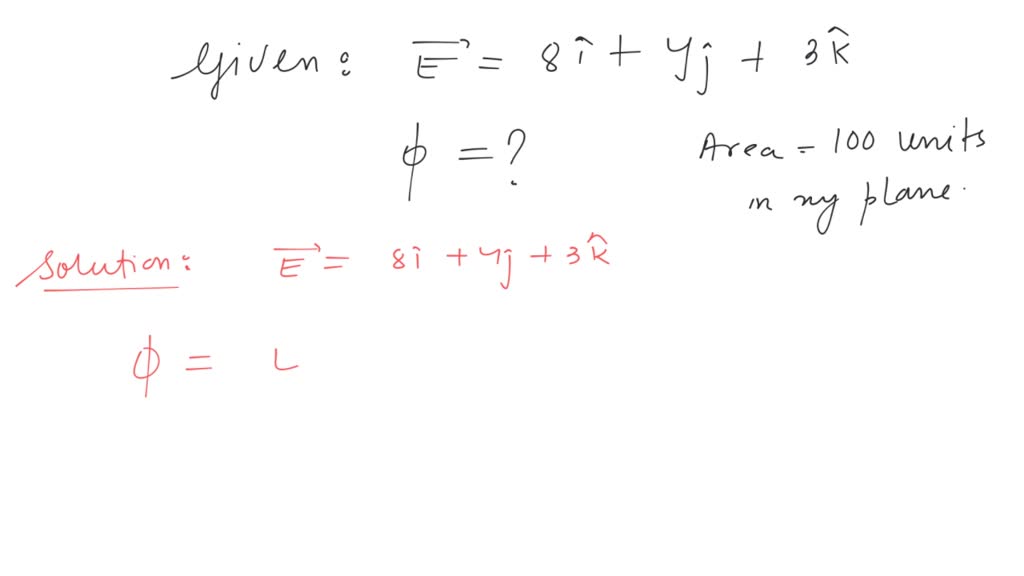 Given: E = 8î + 4ĵ + 3k̂
ϕ = ?
Area = 100 units
in xy plane.
Solution: E = 8î + 4ĵ + 3k̂
ϕ =